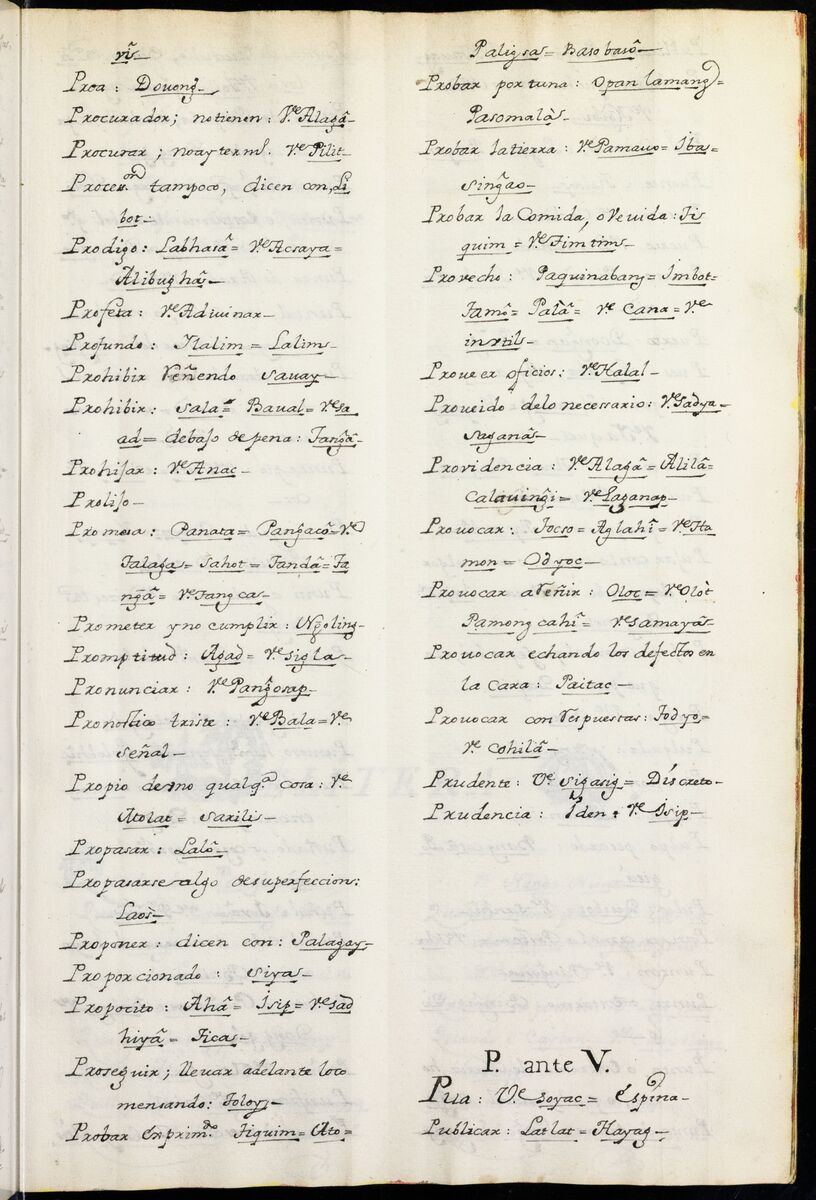 vĩ
Proa: Douong
Procurador; no tienen: Vᵉ Alagâ
Procurar; no ay termᵒ. Vᵉ Pilit
Procesⁿ tampoco, dicen con, Li
bot
Prodigo: Labhasâ = Vᵉ Acsaya =
Alibughâ
Profeta: Vᵉ Adiuinar
Profundo: Ilalim = Lalim
Prohibir Veñendo sauay
Prohibir: sala = Baual = Vᵉ sa
ad = debaſo de pena: Tangâ
Prohiſar: Vᵉ Anac
Proliſo
Promesa: Panata = Pangacô = Vᵉ
Talaga = sahot = Tandâ = Ta
ngâ = Vᵉ Tangcas
Prometer y no cumplir: Ngoling
Promptitud: Agad = Vᵉ sigla
Pronunciar: Vᵉ Pangosap
Pronostico triste: Vᵉ Bala = Vᵉ
señal
Propio de uno qualqᵃ cosa: Vᵉ
Atolat = sarili
Propasar: Lalô
Propasarse algo de su perfeccion:
Laos
Proponer: dicen con: Palagay
Proporcionado: siya
Proposito: Ahâ = Isip = Vᵉ sad
hiyâ = Tica
Proseguir; lleuar adelante lo co
mensando: Toloy
Probar en primᵈᵒ Tiquim = Ato =
Paligsa = Baso basô
Probar por tuna: Opan lamang =
Pasomalà
Probar la tierra: Vᵉ Pamauo = Iba =
singao
Probar la Comida, o veuida: Tis
quim = Vᵉ Timtim
Provecho: Paquinabang = Imbot =
Tamô = Palâ = Vᵉ Cana = Vᵉ
inutil
Proueer oficios: Vᵉ Halal
Proueido delo necessario: Vᵉ Sadya
saganâ
Providencia: Vᵉ Alagâ = Alilâ =
Calauingi = Vᵉ Laganap
Prouocar: Tocso = Aglahî = Vᵉ Ha
mon = Odyoc
Prouocar a reñir: Oloc = Vᵉ Olòt
Pamong cahî = Vᵉ samayâ
Prouocar echando los defectos en
la Cara: Paitac
Prouocar con respuestas: Todyo =
Vᵉ Cohilâ
Prudente: Vᵉ sigasig = Discreto
Prudencia: Iden: Vᵉ Isip
P. ante V.
Pua: Vᵉ soyac = Espina
Publicar: Latlat = Hayag